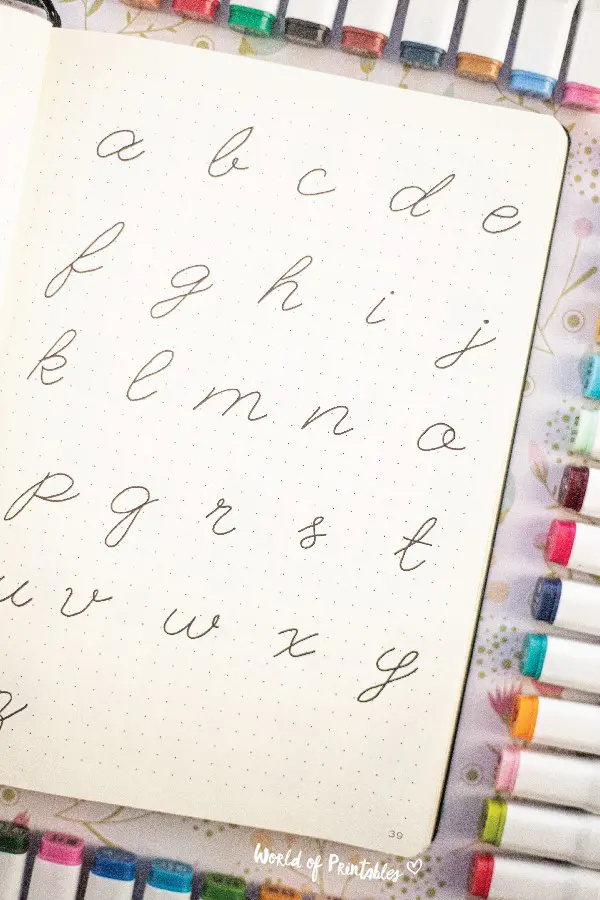 a b c d e
f g h i j
k l m n o
p q r s t
u v w x y
z
39
World of Printables